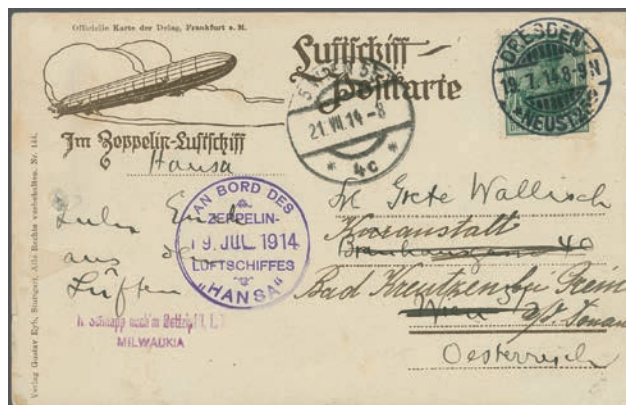 Offizielle Karte der Delag, Frankfurt a. M.
Luftschiff-
Postkarte
DRESDEN-
19.7.14.8-9N
NEUST.
21.VII.14-8
* 4c *
Im Zeppelin-Luftschiff
Hansa
AN BORD DES
ZEPPELIN-
19. JUL. 1914
LUFTSCHIFFES
"HANSA"
aus den
Lüften
MILWAUKIA
Grete Wallisch
Kuranstalt
40
Bad Kreutzen bei Grein
Wien a/d. Donau
Oesterreich
Verlag Gustav Eyb, Stuttgart. Alle Rechte vorbehalten. Nr. 144.